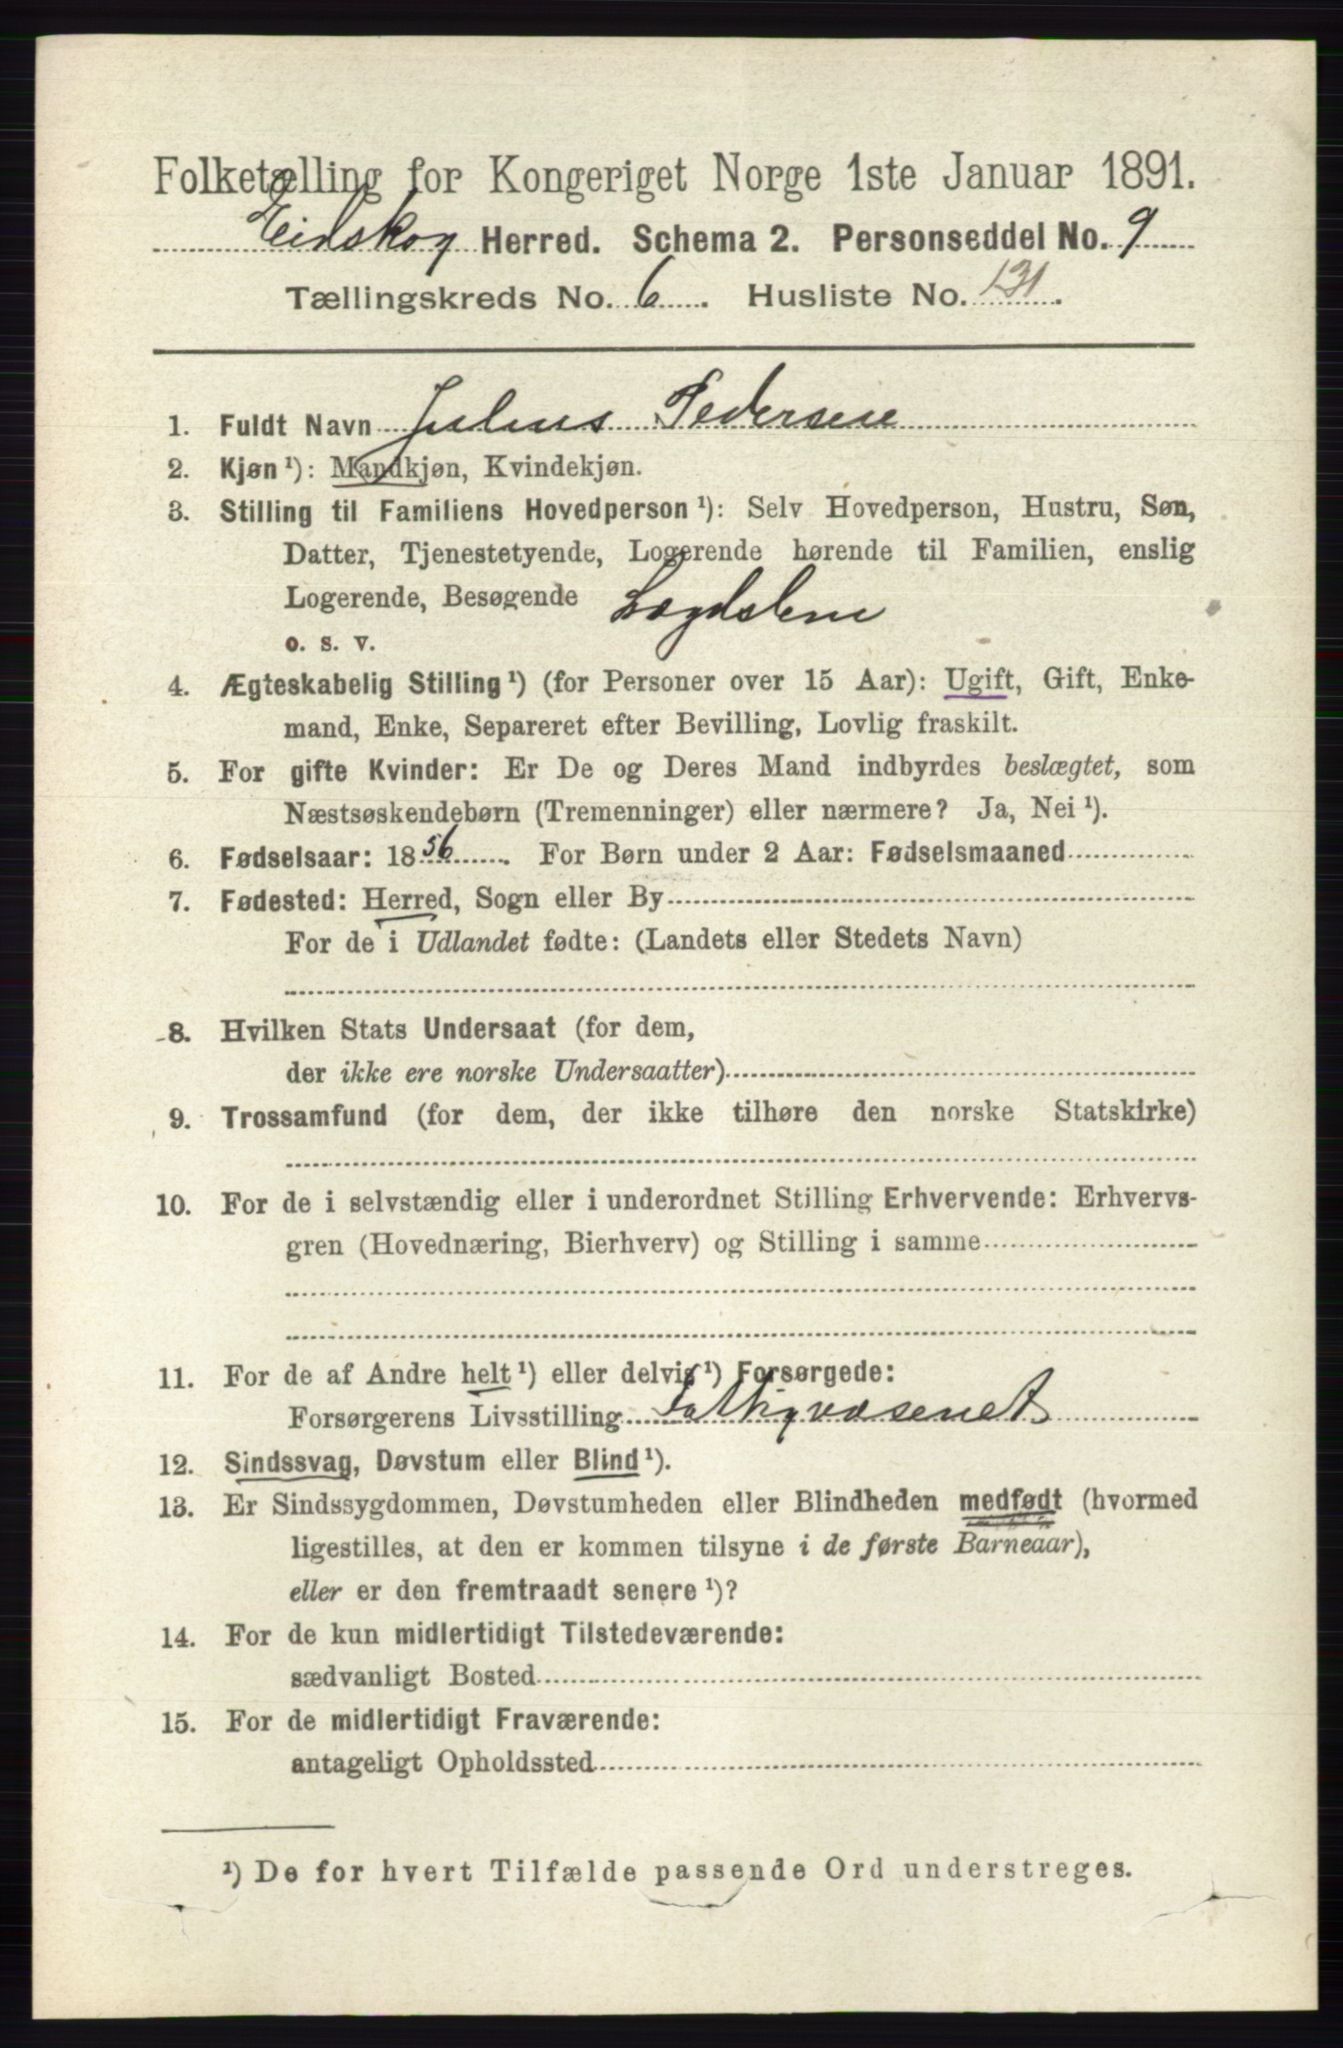 Folketælling for Kongeriget Norge 1ste Januar 1891.
Eidskog Herred. Schema 2. Personseddel No. 9
Tællingskreds No. 6. Husliste No. 131.
1. Fuldt Navn Julius Pedersen
2. Kjøn ¹): Mandkjøn, Kvindekjøn.
3. Stilling til Familiens Hovedperson ¹): Selv Hovedperson, Hustru, Søn,
Datter, Tjenestetyende, Logerende hørende til Familien, enslig
Logerende, Besøgende Lægdslem
o. s. v.
4. Ægteskabelig Stilling ¹) (for Personer over 15 Aar): Ugift, Gift, Enke-
mand, Enke, Separeret efter Bevilling, Lovlig fraskilt.
5. For gifte Kvinder: Er De og Deres Mand indbyrdes beslægtet, som
Næstsøskendebørn (Tremenninger) eller nærmere? Ja, Nei ¹).
6. Fødselsaar: 1856. For Børn under 2 Aar: Fødselsmaaned
7. Fødested: Herred, Sogn eller By
For de i Udlandet fødte: (Landets eller Stedets Navn)
8. Hvilken Stats Undersaat (for dem,
der ikke ere norske Undersaatter)
9. Trossamfund (for dem, der ikke tilhøre den norske Statskirke)
10. For de i selvstændig eller i underordnet Stilling Erhvervende: Erhvervs-
gren (Hovednæring, Bierhverv) og Stilling i samme
11. For de af Andre helt ¹) eller delvis ¹) Forsørgede:
Forsørgerens Livsstilling Fattigvæsenet
12. Sindssvag, Døvstum eller Blind ¹).
13. Er Sindssygdommen, Døvstumheden eller Blindheden medfødt (hvormed
ligestilles, at den er kommen tilsyne i de første Barneaar),
eller er den fremtraadt senere ¹)?
14. For de kun midlertidigt Tilstedeværende:
sædvanligt Bosted
15. For de midlertidigt Fraværende:
antageligt Opholdssted
¹) De for hvert Tilfælde passende Ord understreges.